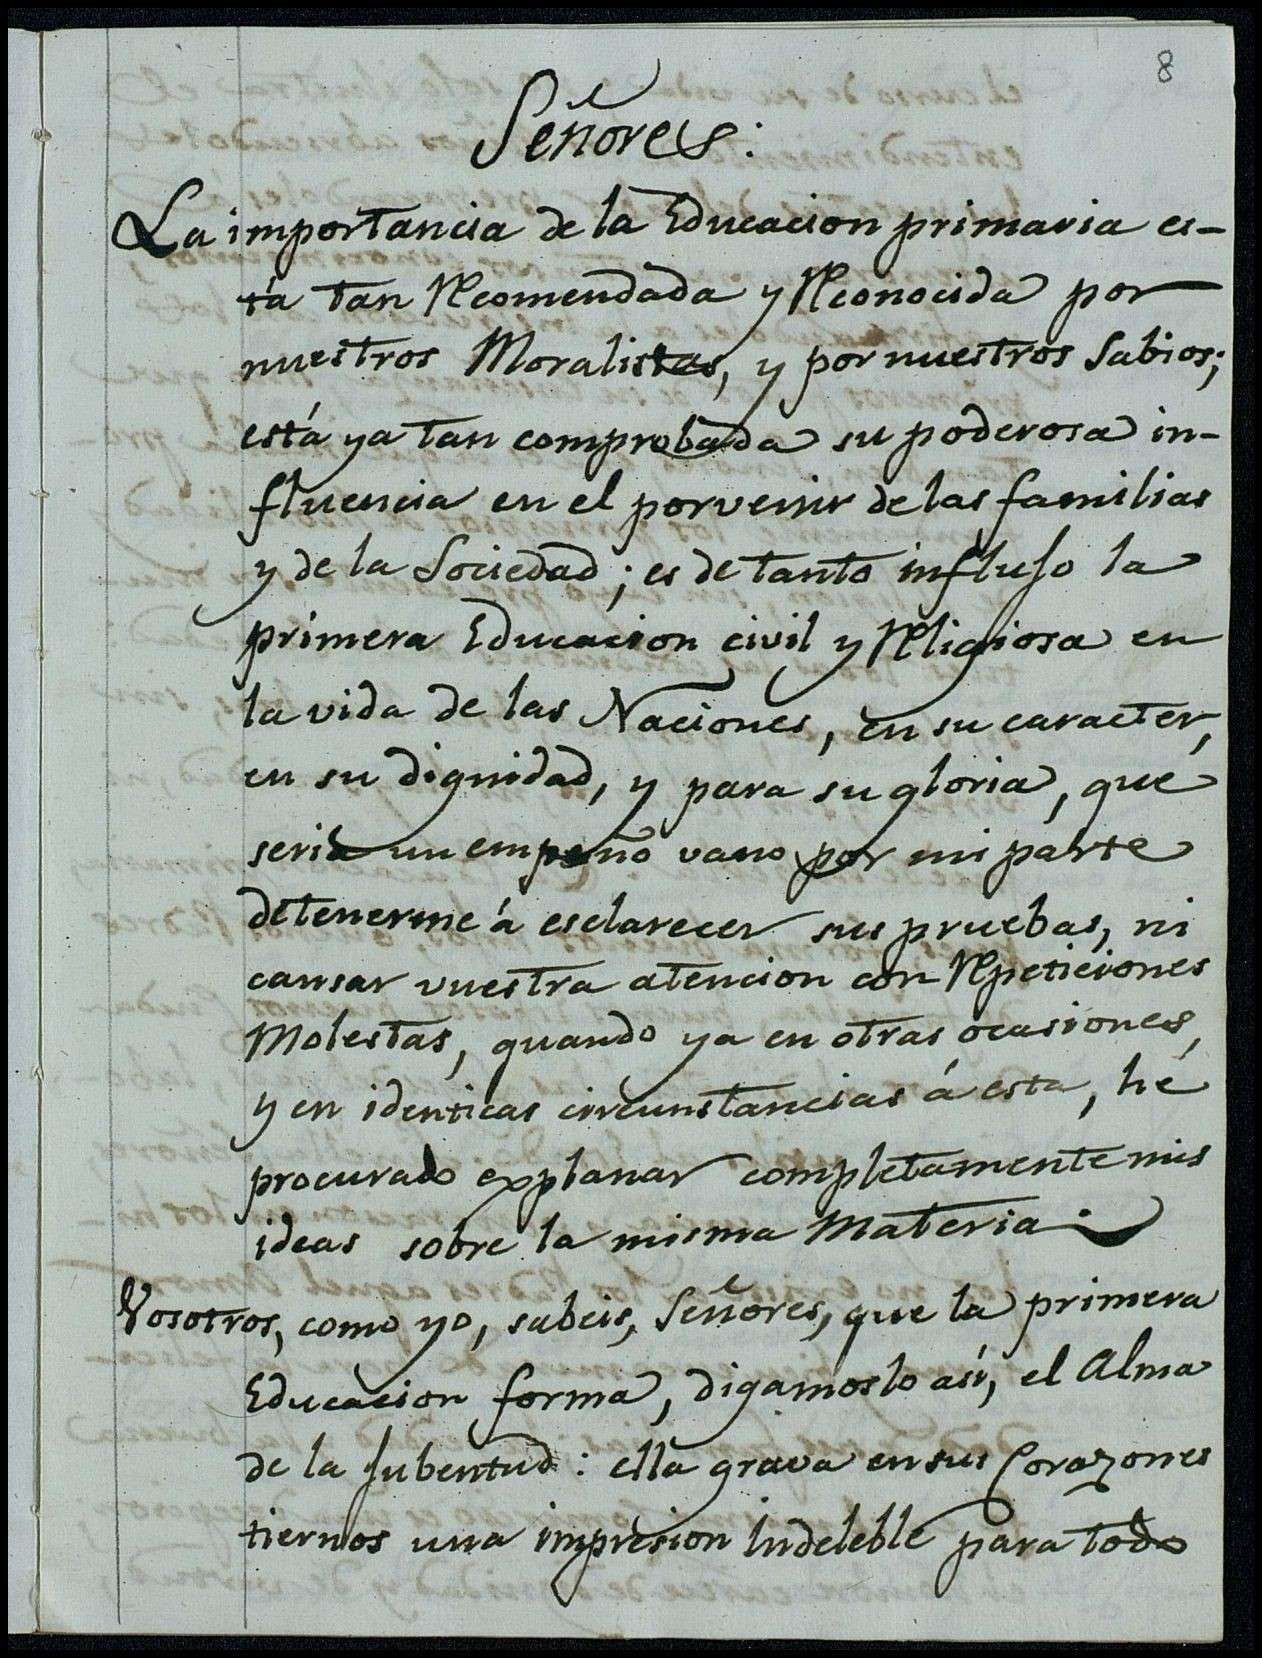 8
Señores:
La importancia de la Educacion primaria es-
tá tan Recomendada y Reconocida por
nuestros Moralistas, y por nuestros Sabios;
está ya tan comprobada su poderosa in-
fluencia en el porvenir de las familias
y de la Sociedad; es de tanto influjo la
primera Educacion civil y Religiosa en
la vida de las Naciones, en su caracter,
en su dignidad, y para su gloria, que
seria un empeño vano por mi parte
detenerme á esclarecer sus pruebas, ni
cansar vuestra atencion con Repeticiones
Molestas, quando ya en otras ocasiones,
y en identicas circunstancias á esta, hé
procurado explanar completamente mis
ideas sobre la misma Materia.
Vosotros, como yo, sabeis, Señores, que la primera
Educacion forma, digamoslo así, el Alma
de la Jubentud: ella grava en sus Corazones
tiernos una impresion Indeleble para todo